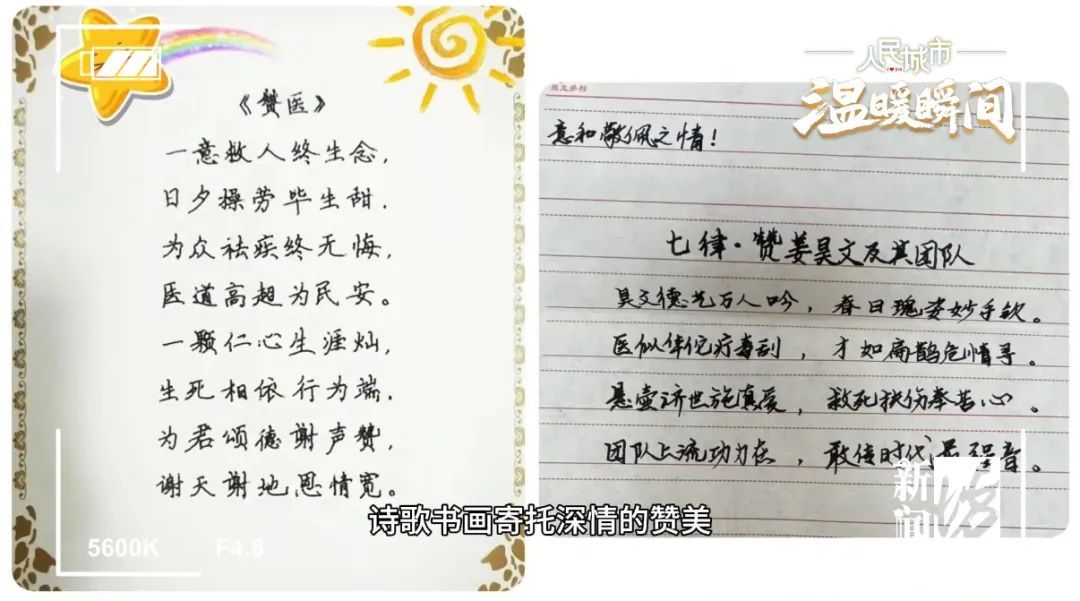 人民城市
温暖瞬间
《赞医》
一意救人终生念，
日夕操劳毕生甜，
为众祛疾终无悔，
医道高超为民安。
一颗仁心生涯灿，
生死相依行为端，
为君颂德谢声赞，
谢天谢地恩情宽。
意和敬佩之情！
七律·赞姜昊文及其团队
昊文德艺万人吟，春日瑰姿妙手钦。
医似华佗疗毒刮，才如扁鹊危情寻。
悬壶济世施真爱，救死扶伤奉苦心。
团队上流功力在，敢传时代最强音。
诗歌书画寄托深情的赞美
5600K F4.8
新闻坊